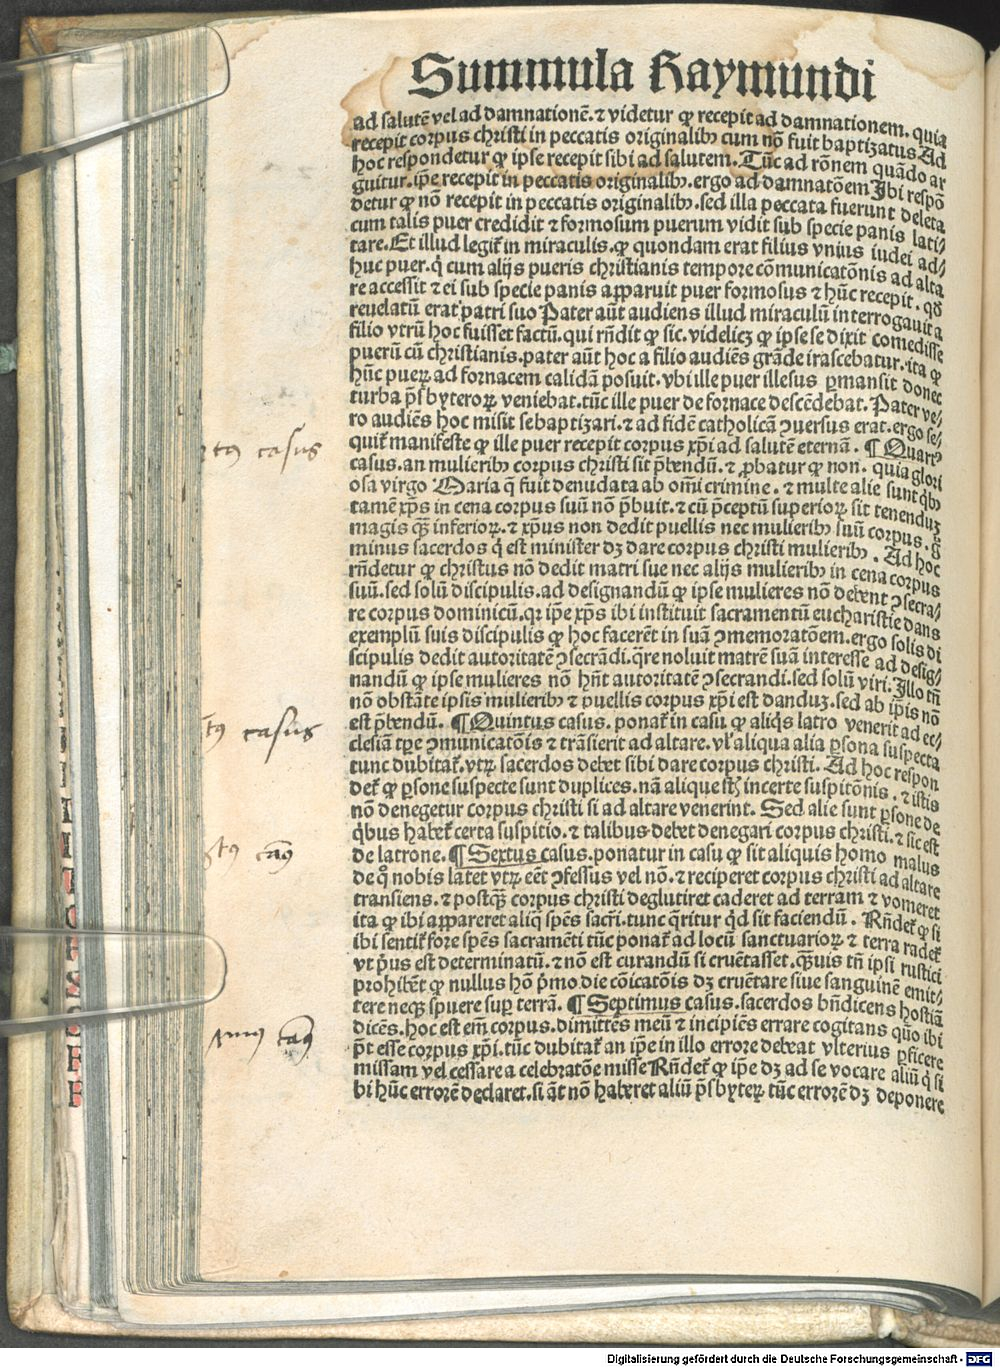 Summula Raymundi
ad salutē vel ad damnationē. ⁊ videtur ꝙ recepit ad damnationem. quia
recepit corpus christi in peccatis originalibꝰ cum nō fuit baptizatus Ad
hoc respondetur ꝙ ipse recepit sibi ad salutem. Tūc ad rōnem quādo ar
guitur. ip̄e recepit in peccatis originalibꝰ. ergo ad damnatōem Ibi respō
detur ꝙ nō recepit in peccatis originalibꝰ. sed illa peccata fuerunt deleta
cum talis puer credidit ⁊ formosum puerum vidit sub specie panis lati/
tare. Et illud legit̄ in miraculis. ꝙ quondam erat filius vnius iudei ad/
huc puer. q̇ cum alijs pueris christianis tempore cōmunicatōnis ad alta
re accessit ⁊ ei sub specie panis apparuit puer formosus ⁊ hūc recepit. qd̄
reuelatū erat patri suo Pater aūt audiens illud miraculū interrogauit a
filio vtrū hoc fuisset factū. qui rn̄dit ꝙ sic. videlicꝫ ꝙ ipse se dixit comedisse
puerū cū christianis. pater aūt hoc a filio audiēs grāde irascebatur. ita ꝙ
hūc pueꝝ ad fornacem calidā posuit. vbi ille puer illesus ꝑmansit donec
turba p̄sbyteroꝝ veniebat. tūc ille puer de fornace descēdebat. Pater ve/
ro audiēs hoc misit se baptizari. ⁊ ad fidē catholicā ꝯuersus erat. ergo se/
quit̄ manifeste ꝙ ille puer recepit corpus xp̄i ad salutē eternā. ¶ Quartꝰ
casus. an mulieribꝰ corpus christi sit p̄bendū. ⁊ ꝓbatur ꝙ non. quia glori
osa virgo Maria q̄ fuit denudata ab om̄i crimine. ⁊ multe alie sunt q̇bꝰ
tamē xp̄s in cena corpus suū nō p̄buit. ⁊ cū p̄ceptū superioꝝ sit tenenduꝫ
magis qꝫ̄ inferioꝝ. ⁊ xp̄us non dedit puellis nec mulieribꝰ suū corpus. g̊
minus sacerdos q̇ est minister dꝫ dare corpus christi mulieribꝰ. Ad hoc
rn̄detur ꝙ christus nō dedit matri sue nec alijs mulieribꝰ in cena corpus
suū. sed solū discipulis. ad designandū ꝙ ipse mulieres nō debent ꝯsecra/
re corpus dominicū. qꝛ ip̄e xp̄s ibi instituit sacramentū eucharistie dans
exemplū suis discipulis ꝙ hoc facerēt in suā ꝯmemoratōem. ergo solis di
scipulis dedit autoritatē ꝯsecrādi. q̄re noluit matrē suā interesse ad desig/
nandū ꝙ ipse mulieres nō hn̄t autoritatē ꝯsecrandi. sed solū viri. Illo tn̄
nō obstāte ipsis mulieribꝰ ⁊ puellis corpus xp̄i est danduꝫ. sed ab ip̄is nō
est p̄bendū. ¶ Quintus casus. ponat̄ in casu ꝙ aliq̇s latro venerit ad ec/
clesiā tꝑe ꝯmunicatōis ⁊ trāsierit ad altare. vl̓ aliqua alia ꝑsona suspecta
tunc dubitat̄. vtꝝ sacerdos debet sibi dare corpus christi. Ad hoc respon
det̄ ꝙ ꝑsone suspecte sunt duplices. nā alique st̄ incerte suspitōnis. ⁊ istis
nō denegetur corpus christi si ad altare venerint. Sed alie sunt ꝑsone de
q̇bus habet̄ certa suspitio. ⁊ talibus debet denegari corpus christi. ⁊ sic est
de latrone. ¶ Sextus casus. ponatur in casu ꝙ sit aliquis homo malus
de q̊ nobis latet vtꝝ eēt ꝯfessus vel nō. ⁊ reciperet corpus christi ad altare
transiens. ⁊ postqꝫ̄ corpus christi deglutiret caderet ad terram ⁊ vomeret
ita ꝙ ibi appareret aliq̇ sp̄es sacr̄i. tunc q̄ritur q̇d sit faciendū. Rn̄det̄ ꝙ si
ibi sentit̄ fore sp̄es sacramēti tūc ponat̄ ad locū sanctuarioꝝ ⁊ terra radet̄
vt p̓us est determinatū. ⁊ nō est curandū si cruētasset. qꝫ̄uis tn̄ ipsi rustici
prohibēt ꝙ nullus hō p̓mo die cōicatōis dꝫ cruētare siue sanguinē emit/
tere neqꝫ spuere suꝑ terrā. ¶ Septimus casus. sacerdos bn̄dicens hostiā
dicēs. hoc est em̄ corpus. dimittēs meū ⁊ incipiēs errare cogitans quō ibi
p̄t esse corpus xp̄i. tūc dubitat̄ an ip̄e in illo errore debeat vlterius ꝑficere
missam vel cessare a celebratōe misse Rn̄det̄ ꝙ ip̄e dꝫ ad se vocare aliū q̇ si
bi hūc errorē declaret. si āt nō haberet aliū p̄sbyteꝝ tūc errorē dꝫ deponere
tꝰ casus
tꝰ casus
tꝰ casus
Digitalisierung gefördert durch die Deutsche Forschungsgemeinschaft - DFG